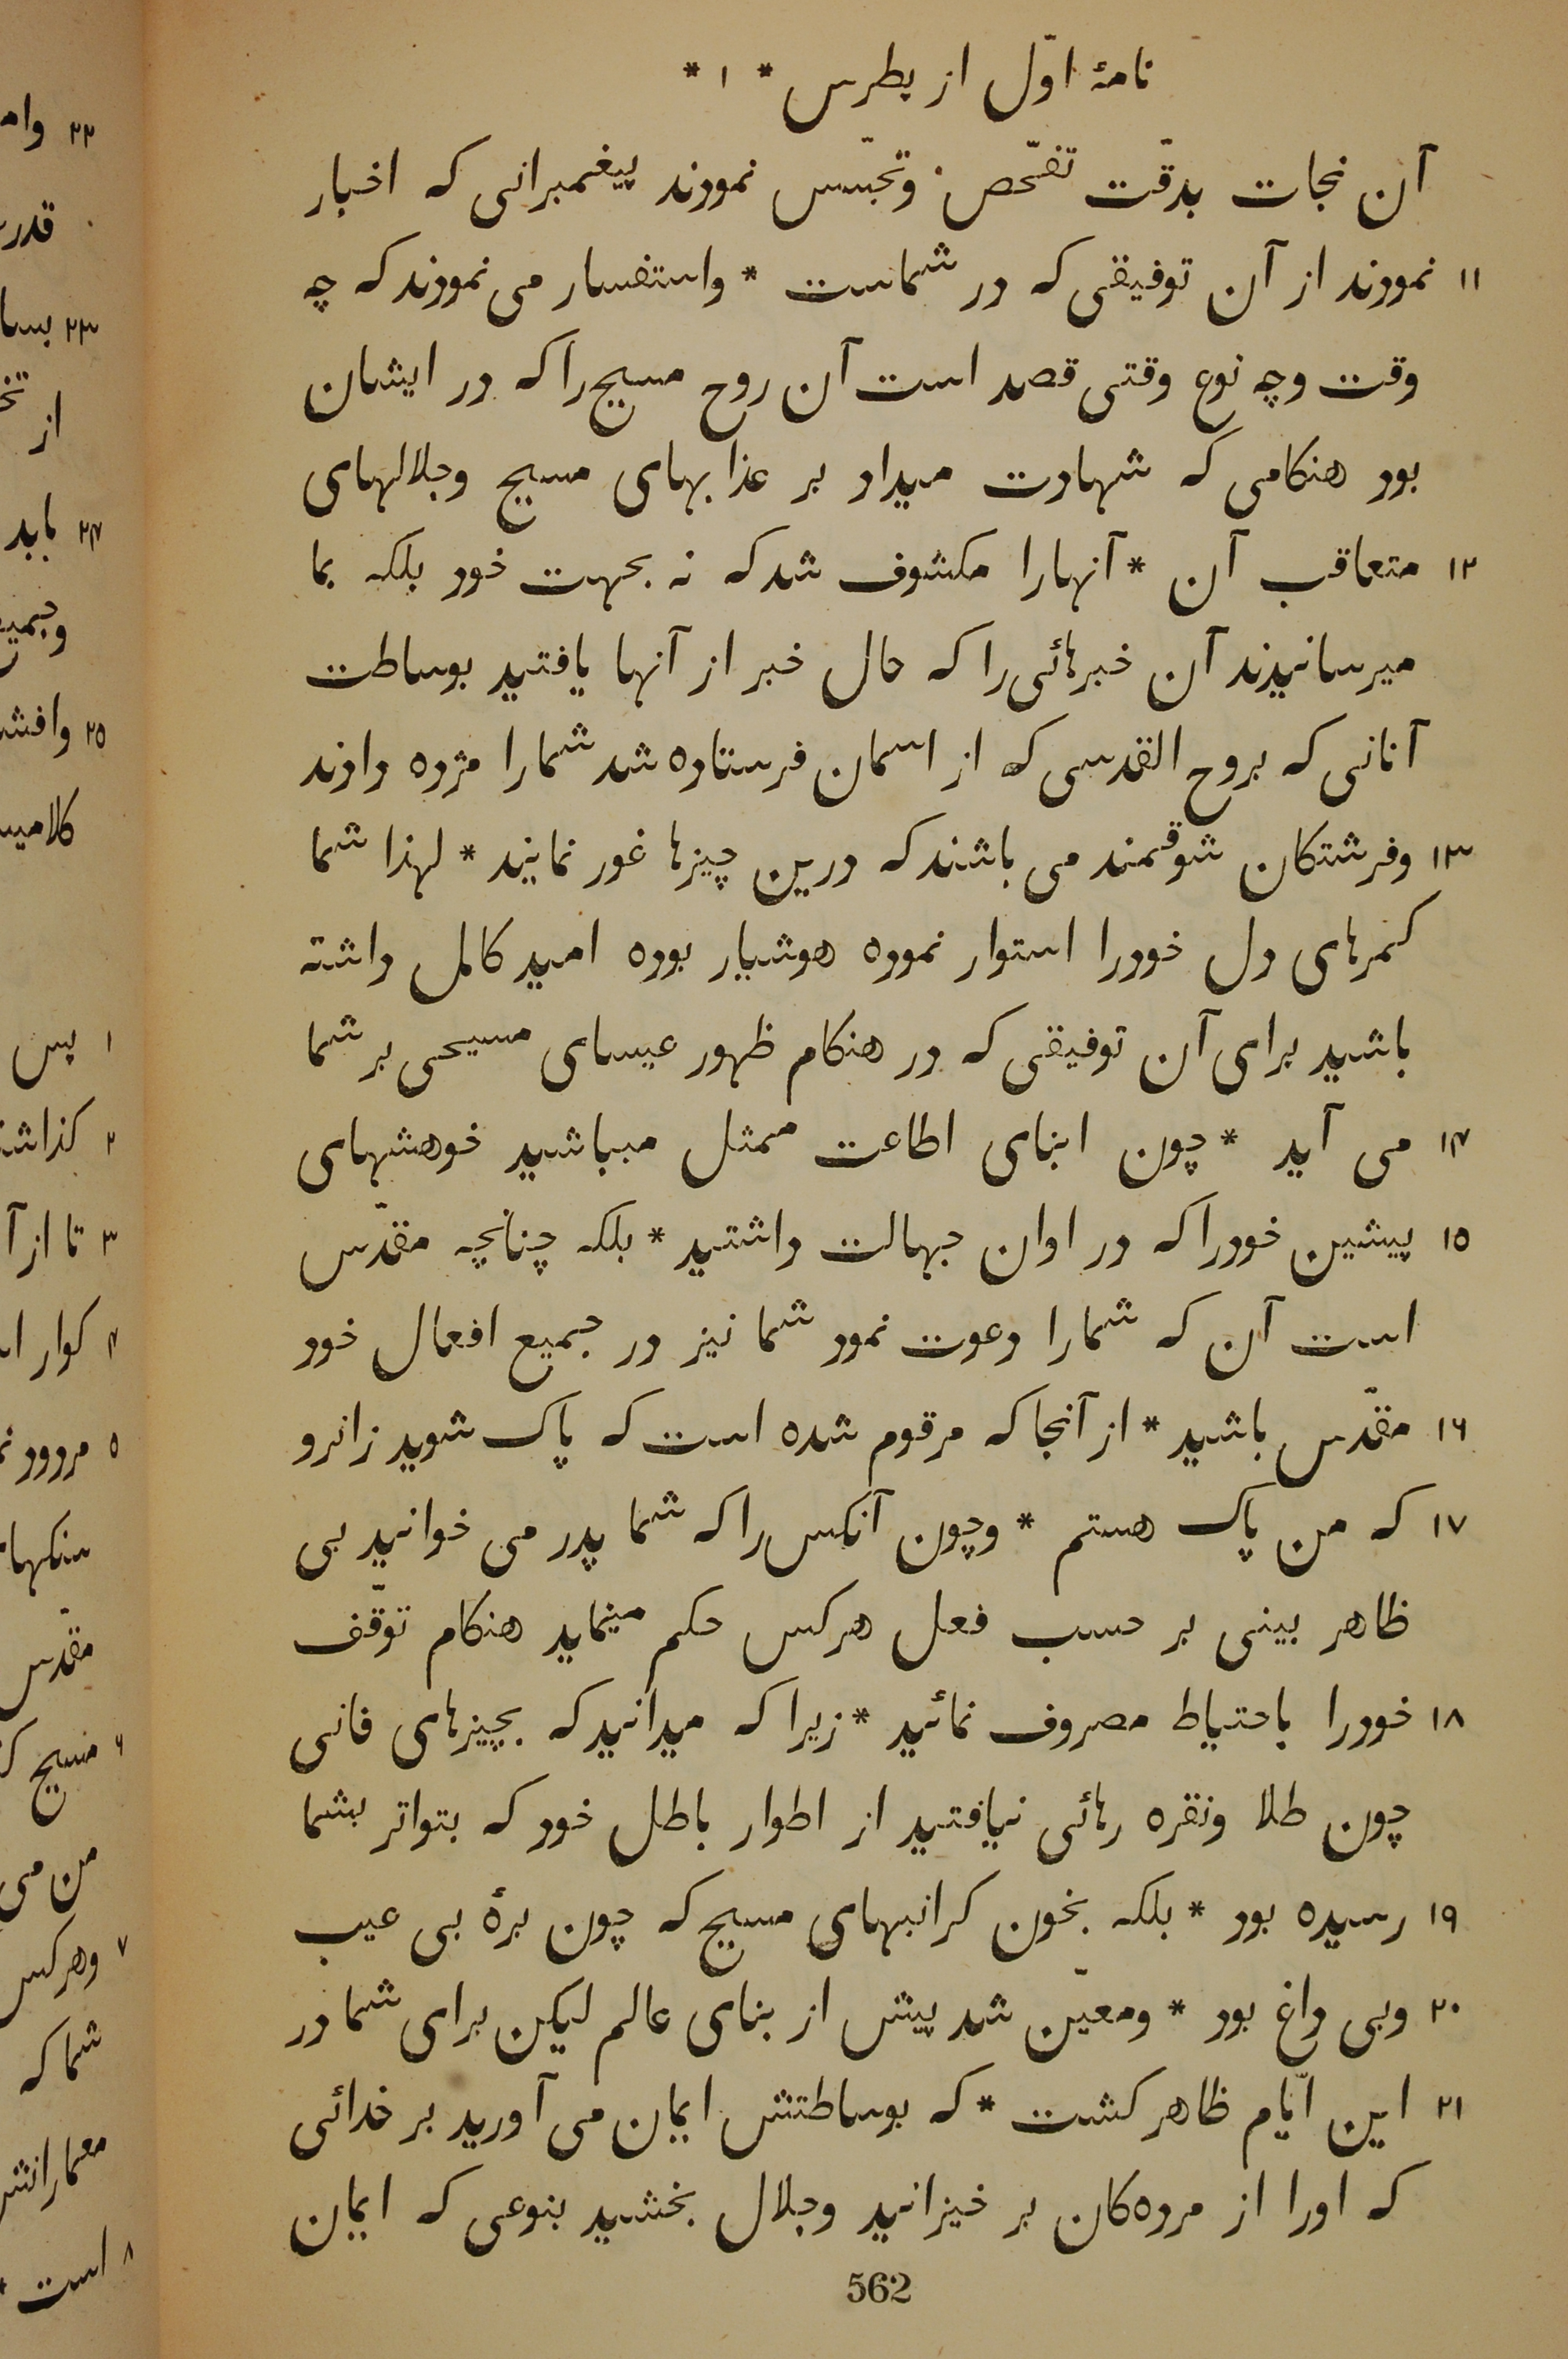 نامهٔ اوّل از پطرس * ۱ *
آن نجات بدقّت تفحّص وتجسّس نمودند پیغمبرانی که اخبار
۱۱ نمودند از آن توفیقی که در شماست * واستفسار می نمودند که چه
وقت وچه نوع وقتی قصد است آن روح مسیح را که در ایشان
بود هنکامی که شهادت میداد بر عذابهای مسیح وجلالهای
۱۲ متعاقب آن * آنهارا مکشوف شد که نه بجهت خود بلکه بما
میرسانیدند آن خبرهائی را که حال خبر از آنها یافتید بوساطت
آنانی که بروح القدسی که از اسمان فرستاده شد شمارا مژده دادند
۱۳ وفرشتکان شوقمند می باشند که درین چیزها غور نمایند * لهذا شما
کمرهای دل خودرا استوار نموده هوشیار بوده امید کامل داشته
باشید برای آن توفیقی که در هنکام ظهور عیسای مسیحی بر شما
۱۴ می آید * چون ابنای اطاعت ممثل مباشید خوهشهای
۱۵ پیشین خودرا که در اوان جهالت داشتید * بلکه چنانچه مقدّس
است آن که شمارا دعوت نمود شما نیز در جمیع افعال خود
۱۶ مقدّس باشید * از آنجا که مرقوم شده است که پاک شوید زانرو
۱۷ که من پاک هستم * وچون آنکس را که شما پدر می خوانید بی
ظاهر بینی بر حسب فعل هرکس حکم مینماید هنکام توقّف
۱۸ خودرا باحتیاط مصروف نمائید * زیرا که میدانید که بچیزهای فانی
چون طلا ونقره رهائی نیافتید از اطوار باطل خود که بتواتر بشما
۱۹ رسیده بود * بلکه بخون کرانبهای مسیح که چون برهٔ بی عیب
۲۰ وبی داغ بود * ومعیّن شد پیش از بنای عالم لیکن برای شما در
۲۱ این ایّام ظاهر کشت * که بوساطتش ایمان می آورید بر خدائی
که اورا از مرده‌کان بر خیزانید وجلال بخشید بنوعی که ایمان
562